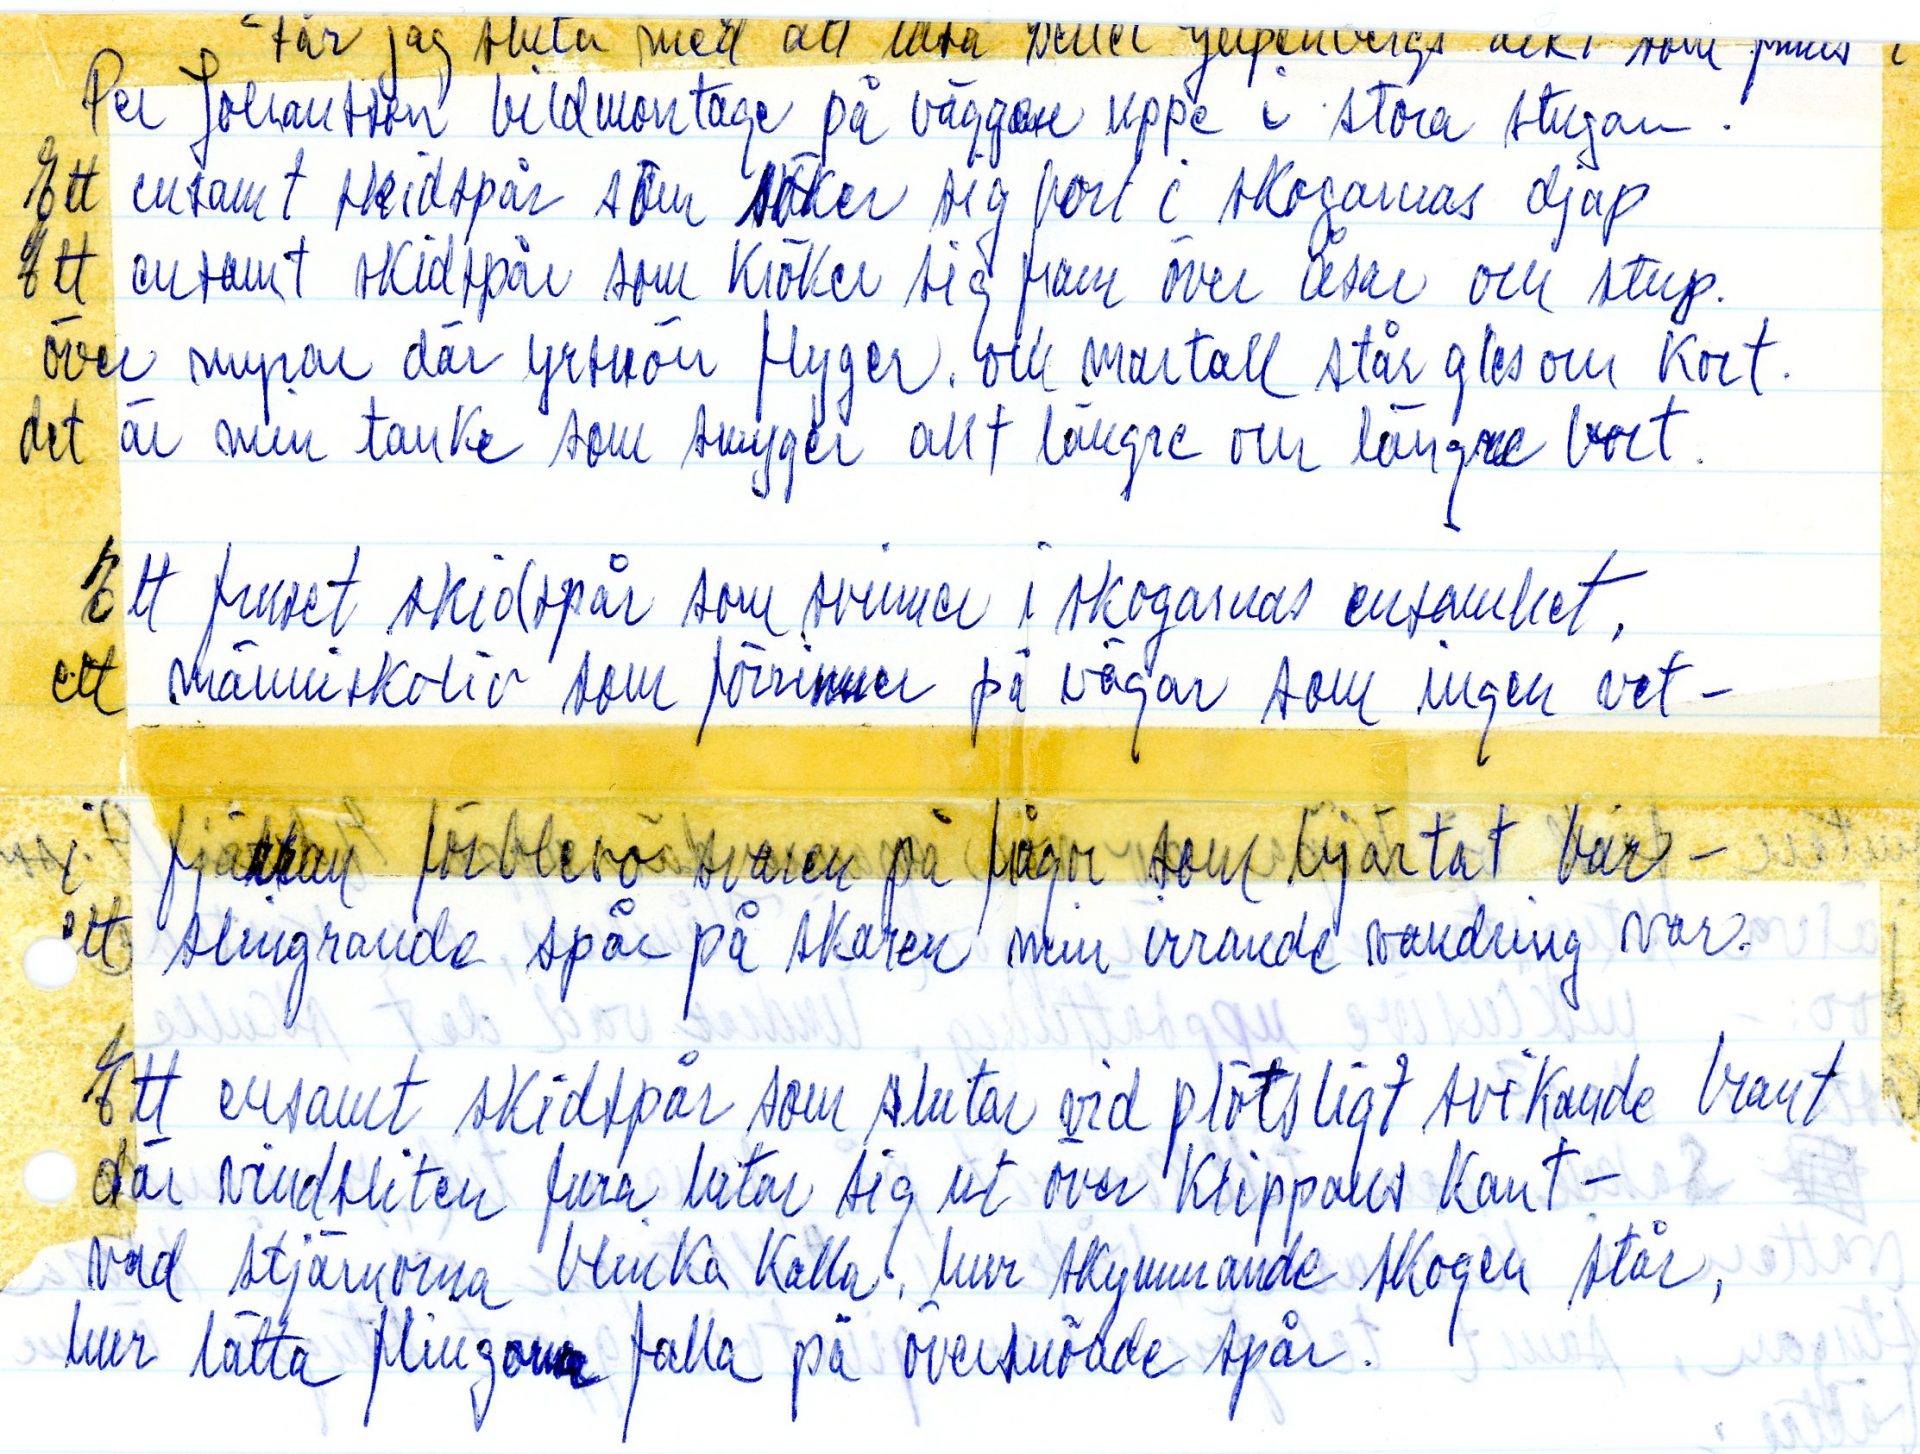 får jag sluta med att läsa Bertel Gripenbergs dikt som finns i
Per Johansson bildmontage på väggen uppe i stora stugan.
Ett ensamt skidspår som söker sig bort i skogarnas djup
Ett ensamt skidspår som kröker sig fram över åsar och stup.
över myrar där yrsnön flyger. och martall står gles och kort.
det är min tanke som smyger allt längre och längre bort.
Ett fruset skidspår som svinner i skogarnas ensamhet,
ett människoliv som förrinner på vägar som ingen vet –
i fjärran förblevo svaren på frågor som hjärtat bar –
ett slingrande spår på skaren min irrande vandring var.
Ett ensamt skidspår som slutar vid plötsligt svikande brant
där vindsliten fura lutar sig ut över klippans kant –
vad stjärnorna blinka kalla, hur skymmande skogen står,
hur lätta flingorna falla på översnöade spår.